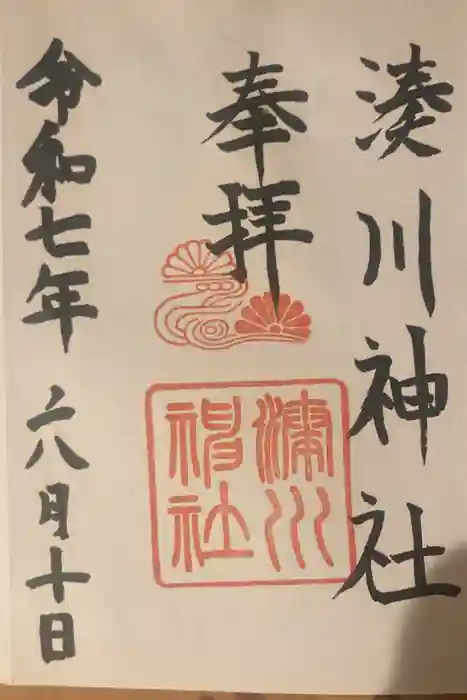 湊川神社
奉拝
湊川
神社
令和七年 六月十日